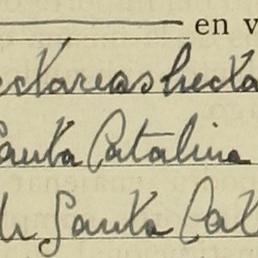 en v
ectareas hecta
Santa Catalina
de Santa Cat